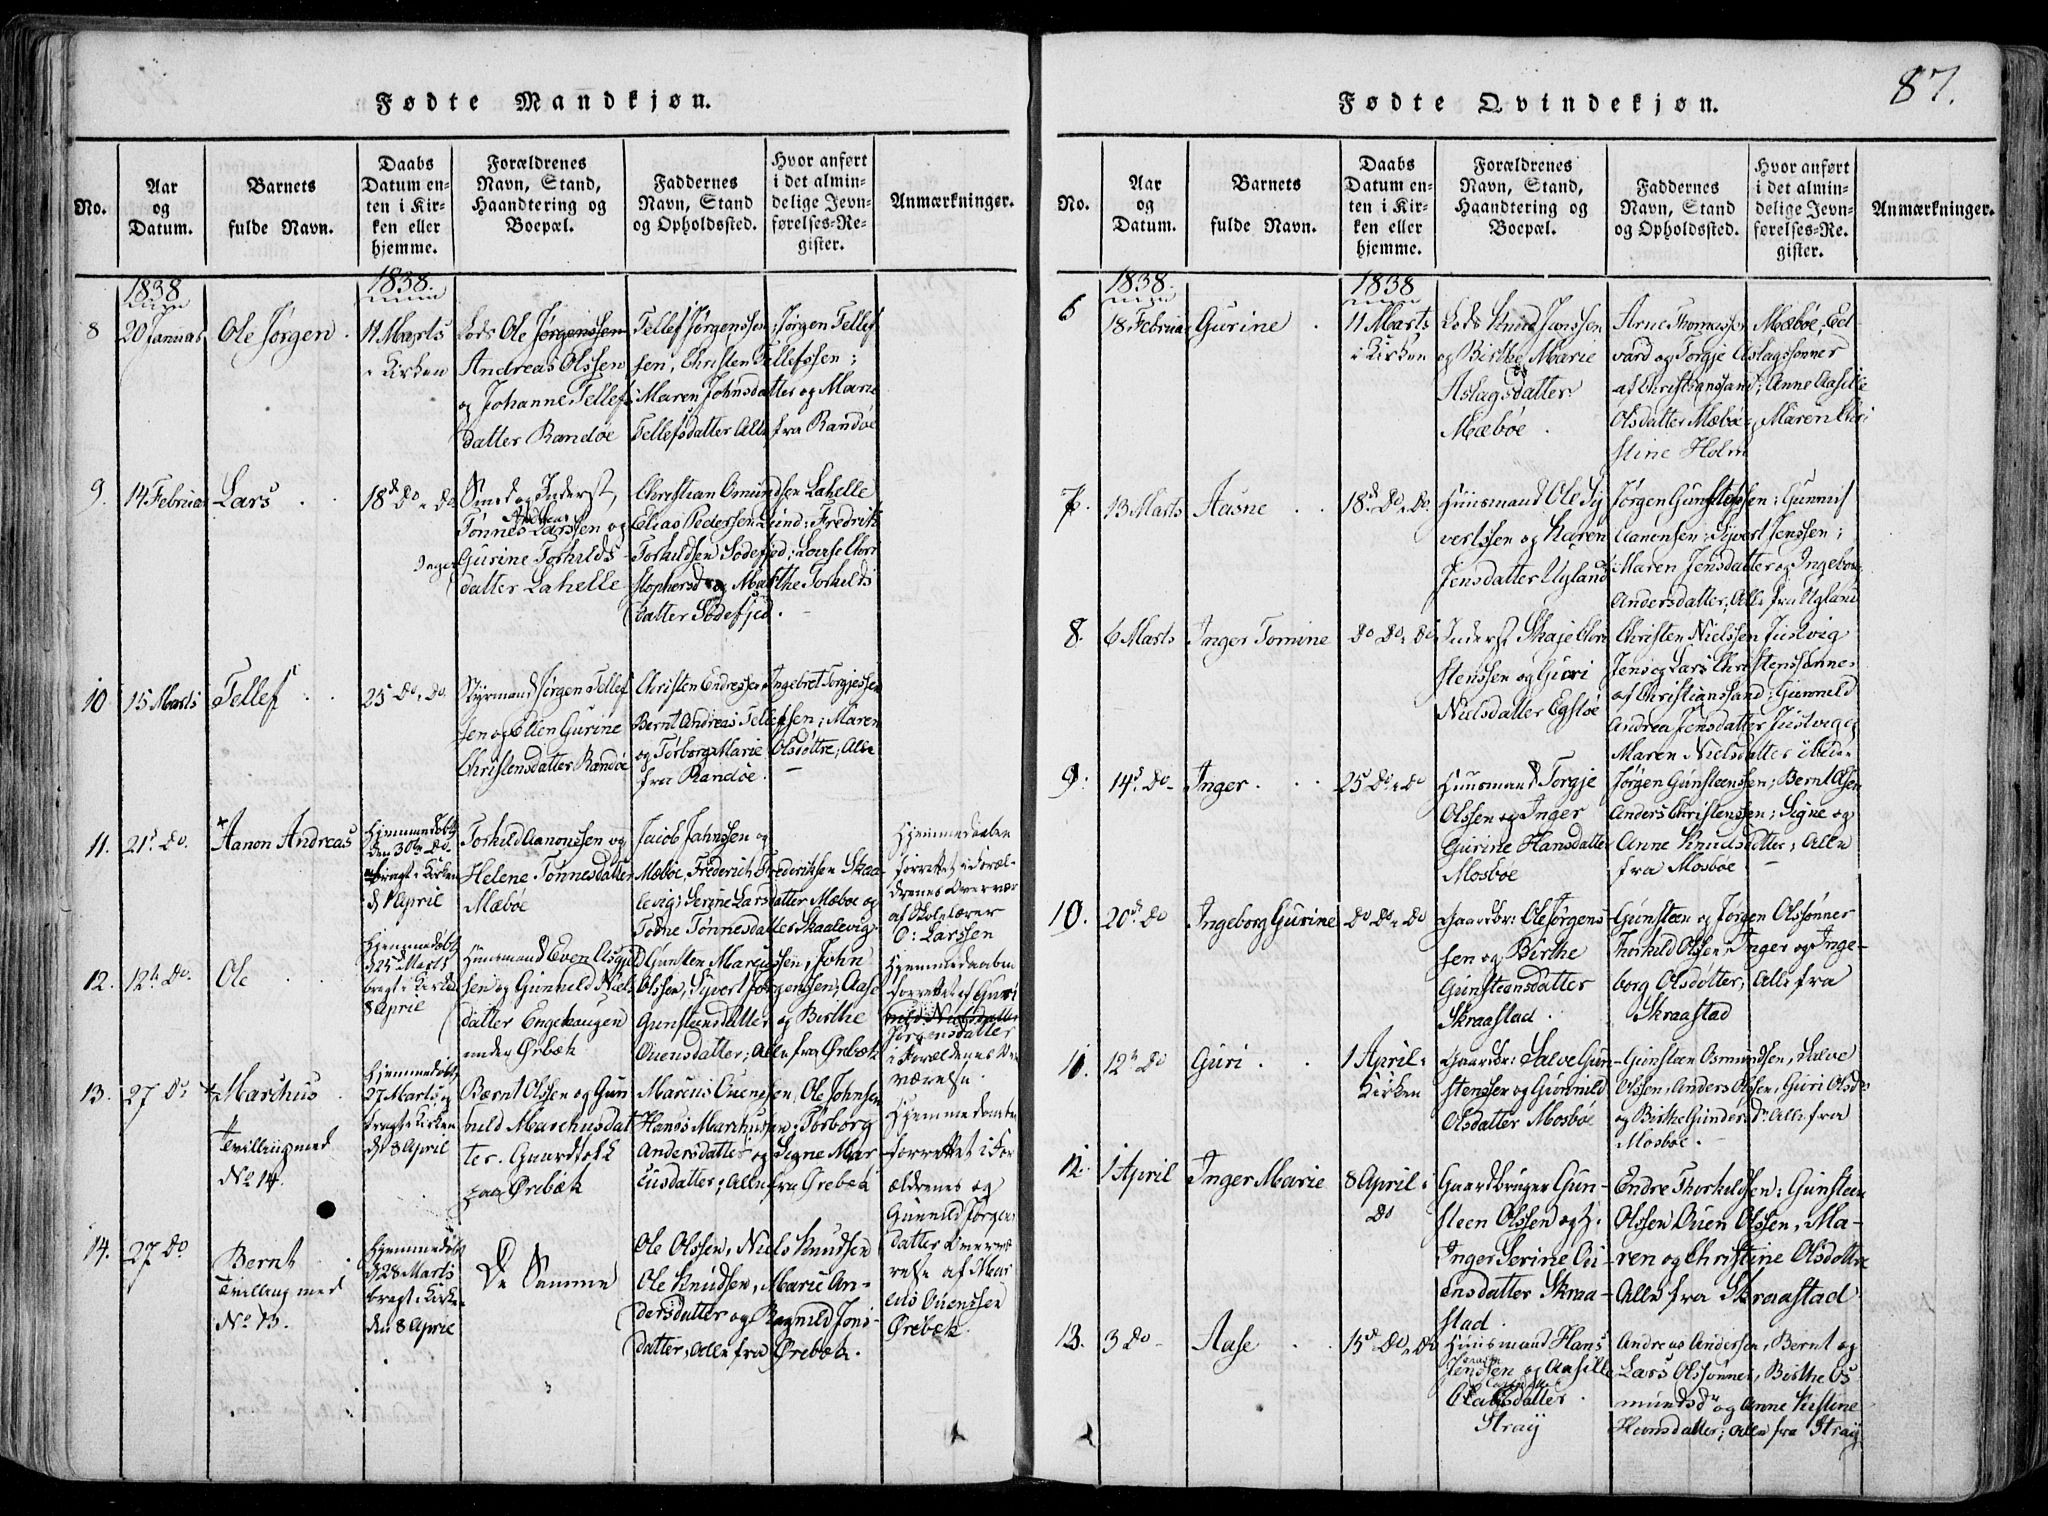 Fødte Mandkjøn.
No.
Aar
og
Datum.
Barnets
fulde Navn.
Daabs
Datum en-
ten i Kir-
ken eller
hjemme.
Forældrenes
Navn, Stand,
Haandtering og
Boepæl.
Faddernes
Navn, Stand
og Opholdssted.
Hvor anført
i det almin-
delige Jevn-
førelses-Re-
gister.
Anmærkninger.
1838
8
20 Januar
Ole Jørgen
1838
11 Marts
i Kirken
Lods Ole Jørgenssen
Andreas Olssen
og Johanne Tellefs
datter Randøe
Tellef Jørgenssen; Jørgen Tellef
sen, Christen Tellefssen;
Maren Johnsdatter og Marie
Tellefsdatter Alle fra Randøe
9.
14 Februar
Lars
18d Do i Do
Smed og Inderst
Tønnes Larssen og
Gurine Torkilds
datter Lahelle
Christian Omundsen Lahelle
Elias Pedersen Lund; Fredrik
Torkildsen Sodefjed; Lovise Chri
stophersd og Marthe Torkilds
datter Sodefjed.
10
15 Marts
Tellef
25 Do i Do
Styrmand Jørgen Tellef
sen og Ellen Gurine
Christensdatter Randøe
Christen Endressen Ingebret Torgjessen
Bernt Andreas Tellefsen; Maren
og Torborg Marie Olsdøttre; Alle
fra Randøe.
11.
21d Do.
Aanon Andreas
Hjemmedøbt
den 30te Do
bragt i Kirken
d 1 April
Torkild Aanonssen og
Helene Tønnesdatter
Mæbøe
Jacob Jahnssen og
Mæbøe, Frederich Frederiksen Skaa
levig; Serine Larsdatter Mæbøe og
Todne Tønnesdatter Skaalevig
Hjemmedaaben
forrettet i Foræl-
drenes Overvær
af Skolelærer
O: Larssen
12.
12te Do.
Ole
Hjemmedøbt
d 25 Marts
bragt i Kirken
8 April
Huusmand Even Asgu
sen og Gunnuld Niels
datter Engehaugen
under Ørbek
Gunsten Marcussen, John
Olssen, Syvert Jørgenssen; Aase
Gunsteensdatter og Birthe
Ouensdatter; Alle fra Ørebek
Hjemmedaaben
forrettet af Guri
Jørgensdatter
i Forældrenes Over
værelse.
13.
27 Do
Marchus
Tvilling med
No 14.
Hjemmedøbt
27 Marts og
bragt i Kirken
d 8 April
Bærnt Olssen og Gun
nuld Marchusdat
ter. Gaardfolk
paa Ørebek
Marcus Ouensen, Ole Johnsen
Hans Marchussen; Torborg
Andersdatter og Signe Mar
cusdatter; Alle fra Ørebek
Hjemmedaaben
forrettet i For
ældrenes og
Gunnild Jørgens
datter Overvæ
relse af Mar
cus Ouenssen
Ørebek.
14.
27 Do
Bernt
Tvilling med
No 13.
Hjemmedøbt
d 28 Marts
bragt i Kirke
den 8 April
De Samme
Ole Olssen, Niels Knudsen
Ole Knudsen, Marie An-
dersdatter og Ragnild Jons-
datter, Alle fra Ørebek.
87.
Fødte Qvindekjøn.
No.
Aar
og
Datum.
Barnets
fulde Navn.
Daabs
Datum en-
ten i Kir-
ken eller
hjemme.
Forældrenes
Navn, Stand,
Haandtering og
Boepæl.
Faddernes
Navn, Stand
og Opholdssted.
Hvor anført
i det almin-
delige Jevn-
førelses-Re-
gister.
Anmærkninger.
1838.
6
18 Februar
Gurine
1838
11 Marts
i Kirken
Lods Knud Jenssen
og Birthe Marie
Aslagsdatter
Mæbøe.
Arne Thomassen Mæbøe; Ed
vard og Torgje Aslagssønner
af Christianssand; Anne Aasille
Olsdatter Mæbøe, Maren Chri
stine Holm
7.
13 Marts
Aasne
18d Do i Do
Huusmand Ole Sy
vertssen og Karen
Jensdatter Ugland
Jørgen Gunsteenssen; Gunnius
Aanensen; Syvert Jenssen;
Maren Jensdatter og Ingebor
Andersdatter; Alle fra Ugland
8.
6 Marts
Inger Tomine
Do Do i Do
Inderst Skaje Chri
stenssen og Guri
Nielsdatter Egsløe
Christen Nielssen Justvig
Jens og Lars Christenssønner
af Christianssand; Gunnuld
Andrea Jensdatter Justvig og
Maren Nielsdatter ibid.
9.
14d Do
Inger
25 Do i Do
Huusmand Torgje
Olssen og Inger
Gurine Hansdatter
Mosbøe
Jørgen Gunsteenssen; Bernt Olsen
Anders Christenssen; Signe og
Anne Knudsdatter, Alle
fra Mosbøe
10.
20d Do
Ingeborg Gurine
Do Do i Do
Gaardbr: Ole Jørgens
sen og Birthe
Gunsteensdatter
Skraastad.
Gunsteen og Jørgen Olssønner
Thorkild Olssen Inger og Inge-
borg Olsdøtter, Alle fra
Skraastad
11.
12te Do
Guri
1 April i
Kirken
Gaardbr: Salve Gun-
stenssen og Gunnild
Olsdatter Mosbøe
Gunsteen Osmundsen, Salve
Olssen, Anders Olssen, Guri Olsd
og Birthe Gundersd Alle fra
Mosbøe.
12.
1 April
Inger Marie
8 April i
Do
Gaardbruger Gun-
steen Olssen og H.
Inger Serine Ou-
ensdatter Skraa-
stad.
Endre Thorkildsen; Gunsteen
Olssen Ouen Olssen, Ma-
ren og Christine Olsdøttre
Alle fra Skraastad
13.
3 Do
Aase
15d Do i Do
Huusmand Hans
Jenssen og Aasille
Olausdatter
Stray
Andreas Andersen, Bernt og
Lars Olssønner, Birthe Os
mundsdr og Anne Kistine
Hansdatter; Alle fra Stray